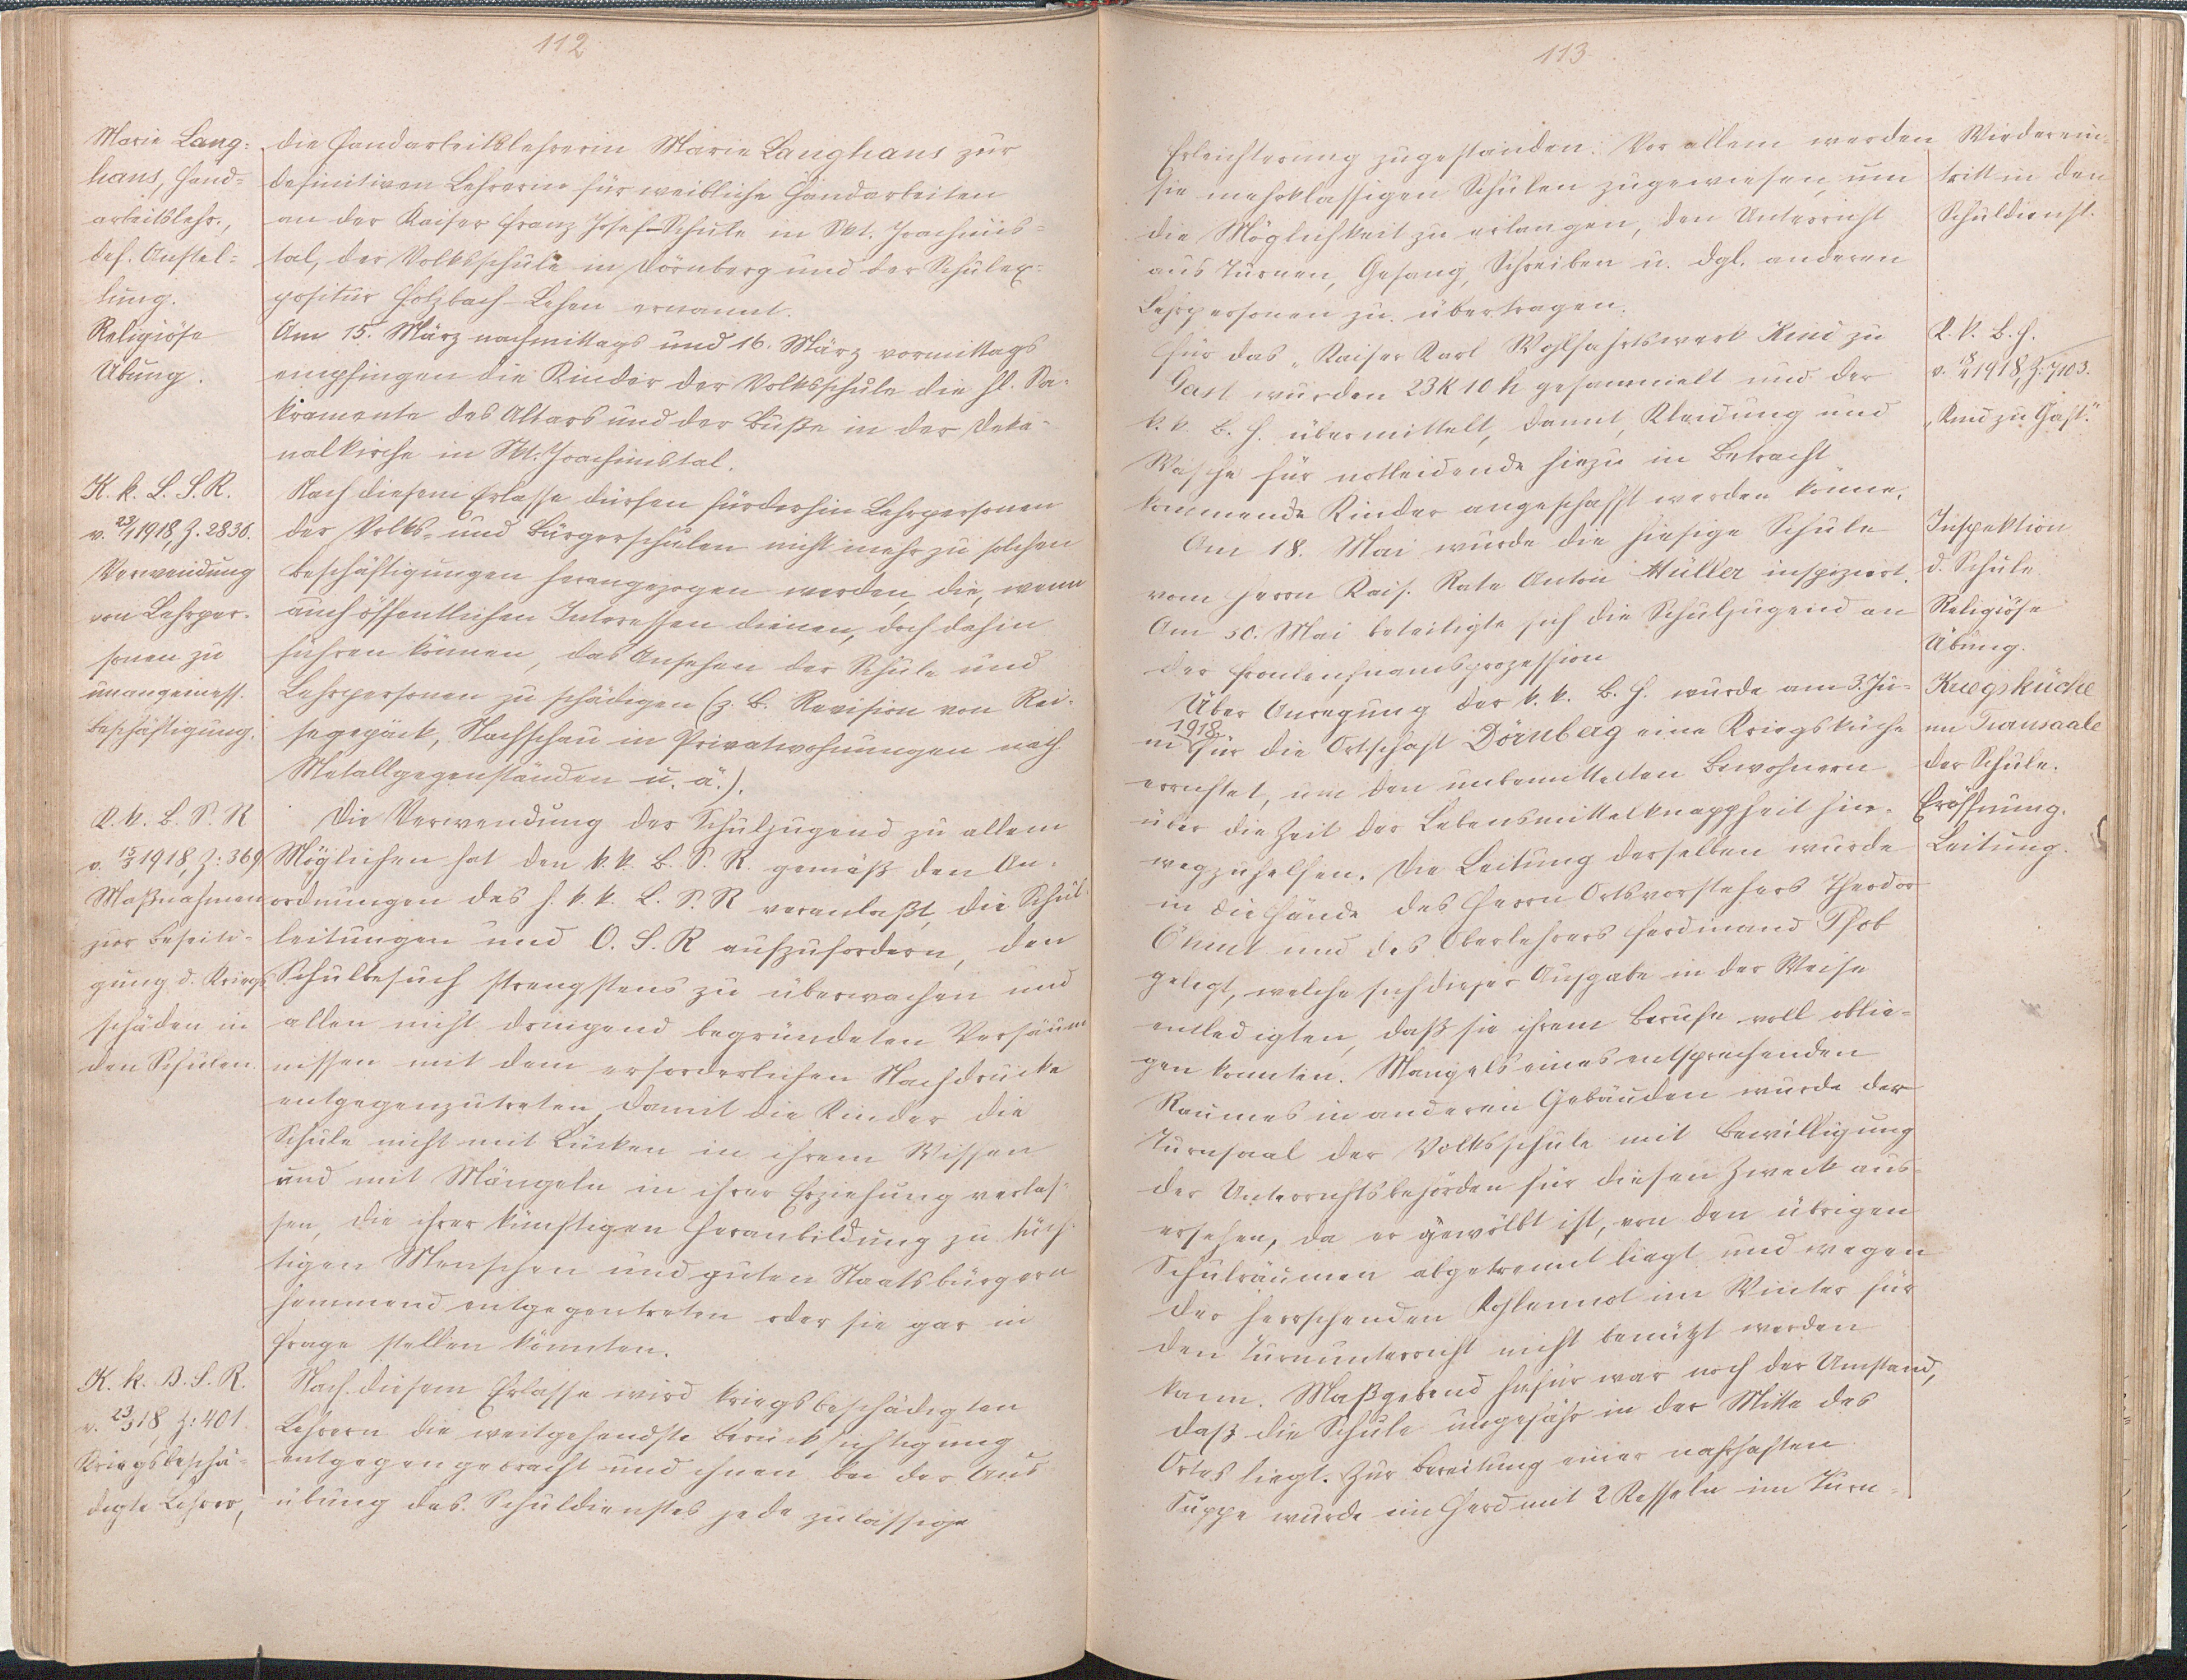 112
Marie Lang-
hans, Hand-
arbeitslehr.,
def. Anstel-
lung.
Religiöse
Übung.
K. k. L. S. R.
v. 23/1 1918, Z. 2830.
Verwendung
von Lehrper-
sonen zu
unangemess.
Beschäftigung.
K. k. B. S. R
v. 15/3 1918, Z: 369
Maßnahmen
zur Beseiti-
gung d. Kriegs
schäden in
den Schulen.
K. k. B. S. R.
v. 23/3 18, Z: 401.
Kriegsbeschä-
digte Lehrer,
die Handarbeitslehrerin Marie Langhans zur
definitiven Lehrerin für weibliche Handarbeiten
an der Kaiser Franz Josef-Schule in Skt. Joachims-
tal, der Volksschule in Dörnberg und der Schulex-
positur Holzbach-Lehen ernannt.
Am 15. März nachmittags und 16. März vormittags
empfingen die Kinder der Volksschule die hl. Sa-
kramente des Altars und der Buße in der Deka-
nalkirche in Skt. Joachimstal.
Nach diesem Erlasse dürfen fürderhin Lehrpersonen
der Volks- und Bürgerschulen nicht mehr zu solchen
Beschäftigungen herangezogen werden, die, wenn
auch öffentlichen Interessen dienen, doch dahin
führen können, das Ansehen der Schule und
Lehrpersonen zu schädigen (z. B. Revision von Rei-
segepäck, Nachschau in Privatwohnungen nach
Metallgegenständen u. ä.).
Die Verwendung der Schuljugend zu allem
Möglichen hat den k. k. B. S. R. gemäß den An-
ordnungen des h. k. k. L. S. R veranlaßt, die Schul-
leitungen und O. S. R aufzufordern, den
Schulbesuch strengstens zu überwachen und
allen nicht dringend begründeten Versäum
nissen mit dem erforderlichen Nachdrucke
entgegenzutreten, damit die Kinder die
Schule nicht mit Lücken in ihrem Wissen
und mit Mängeln in ihrer Erziehung verlas-
sen, die ihrer künftigen Heranbildung zu tüch-
tigen Menschen und guten Staatsbürgern
hemmend entgegentreten oder sie gar in
Frage stellen könnten.
Nach diesem Erlasse wird kriegsbeschädigten
Lehrern die weitgehendste Berücksichtigung
entgegengebracht und ihnen bei der Aus
übung des Schuldienstes jede zulässige
113
Erleichterung zugestanden. Vor allem werden
sie mehrklassigen Schulen zugewiesen, um
die Möglichkeit zu erlangen, den Unterricht
aus Turnen, Gesang, Schreiben u. dgl. anderen
Lehrpersonen zu übertragen.
Für das „Kaiser Karl Wohlfahrtswerk Kind zu
Gast wurden 23 K 10 h gesammelt und der
k. k. B. H. übermittelt, damit Kleidung und
Wäsche für notleidende hiezu in Betracht
kommende Kinder angeschafft werden könne.
Am 18. Mai wurde die hiesige Schule
vom Herrn Kais. Rate Anton Müller inspiziert.
Am 30. Mai beteiligte sich die Schuljugend an
der Fronleichnamsprozession
Über Anregung der k. k. B. H. wurde am 3. Ju-
ni 1918 für die Ortschaft Dörnberg eine Kriegsküche
errichtet, um den unbemittelten Bewohnern
über die Zeit der Lebensmittelknappheit hin-
wegzuhelfen. Die Leitung derselben wurde
in die Hände des Herrn Ortsvorstehers Theodor
und des Oberlehrers Ferdinand
gelegt, welche sich dieser Aufgabe in der Weise
entledigten, daß sie ihrem Berufe voll oblie-
gen konnten. Mangels eines entsprechenden
Raumes in anderen Gebäuden wurde der
Turnsaal der Volksschule mit Bewilligung
der Unterrichtsbehörden für diesen Zweck aus-
ersehen, da er gewölbt ist, von den übrigen
Schulräumen abgetrennt liegt und wegen
der herrschenden Kohlennot im Winter für
den Turnunterricht nicht benützt werden
kann. Maßgebend hiefür war noch der Umstand,
daß die Schule ungefähr in der Mitte des
Ortes liegt. Zur Bereitung einer nahrhaften
Suppe wurde ein Herd mit 2 Kesseln im Turn-
Wiederein-
tritt in den
Schuldienst.
K. k. B. H.
v. 18/4 1918, Z: 7103.
„Kind zu Gast."
Inspektion
d. Schule.
Religiöse
Übung.
Kriegsküche
im Turnsaale
der Schule.
Eröffnung.
Leitung.